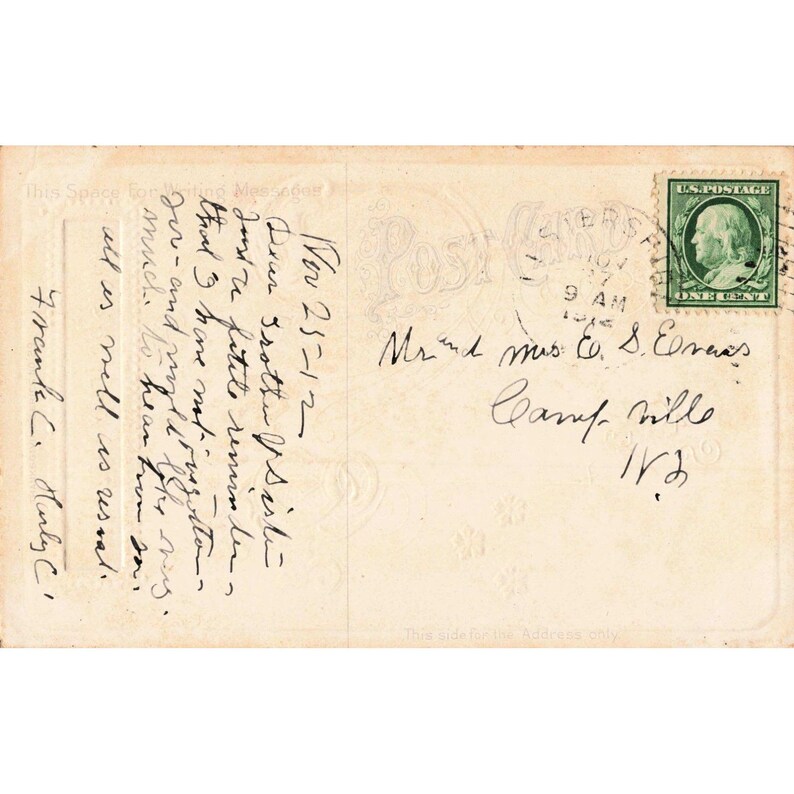 This Space For Writing Messages
POST CARD
U.S. POSTAGE
ONE CENT
NOV
27
9 AM
1912
Nov 25-12
Dear Brother & Sister
Just a little reminder
that I have not forgotten
you - and would like very
much to hear from you.
all is well as usual.
Frank C.
Mr and Mrs E S. Evans
Campville
NY
This side for the Address only.